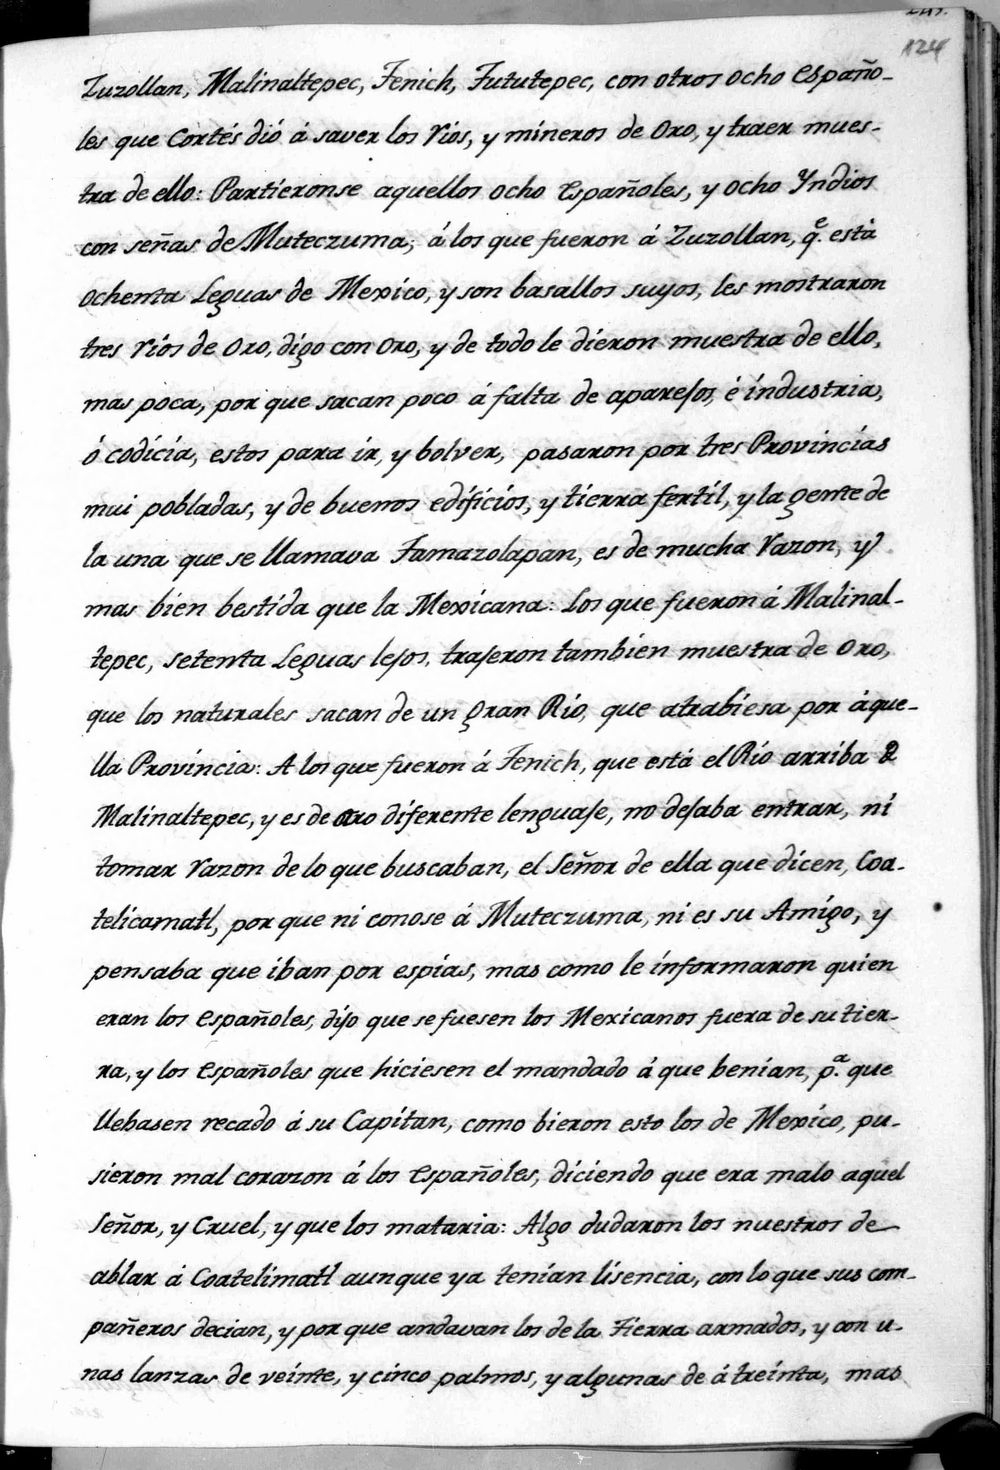 124
Zuzollan, Malinaltepec, Tenich, Tututepec, con otros ocho Españo-
les que Cortés dió á saver los Rios, y mineros de Oro, y traer mues-
tra de ello: Partieronse aquellos ocho Españoles, y ocho Yndios
con señas de Muteczuma; á los que fueron á Zuzollan, q.e está
ochenta Leguas de Mexico, y son basallos suyos, les mostraron
tres Rios de Oro, digo con Oro, y de todo le dieron muestra de ello,
mas poca, por que sacan poco á falta de aparejos, é industria,
ó codicia, estos para ir, y bolver, pasaron por tres Provincias
mui pobladas, y de buenos edificios, y tierra fertil, y la gente de
la una que se llamava Tamazolapan, es de mucha Razon, y
mas bien bestida que la Mexicana: Los que fueron á Malinal-
tepec, setenta Leguas lejos, trajeron tambien muestra de Oro,
que los naturales sacan de un gran Rio, que atrabiesa por áque-
lla Provincia: A los que fueron á Tenich, que está el Rio arriba de
Malinaltepec, y es de otro diferente lenguaje, no dejaba entrar, ni
tomar Razon de lo que buscaban, el Señor de ella que dicen, Coa-
telicamatl, por que ni conose á Muteczuma, ni es su Amigo, y
pensaba que iban por espias, mas como le informaron quien
eran los Españoles, dijo que se fuesen los Mexicanos fuera de su tier-
ra, y los Españoles que hiciesen el mandado á que benian, p.a que
llebasen recado á su Capitan, como bieron esto los de Mexico, pu-
sieron mal corazon á los Españoles, diciendo que era malo aquel
Señor, y Cruel, y que los mataria: Algo dudaron los nuestros de
ablar á Coatelimatl aunque ya tenian lisencia, con lo que sus com-
pañeros decian, y por que andavan los de la Tierra armados, y con u-
nas lanzas de veinte, y cinco palmos, y algunas de á treinta, mas